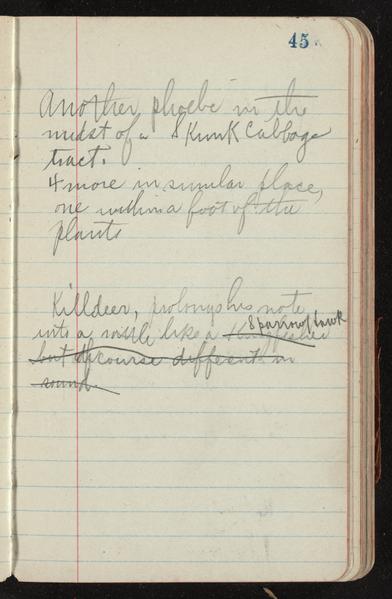 45
Another phoebe in the
midst of a Skunk Cabbage
tract.
4 more in similar place,
one within a foot of the
plants
Killdeer, prolongs his note
Sparrow hawk
into a like a Kingfisher
but of course different in
sound.